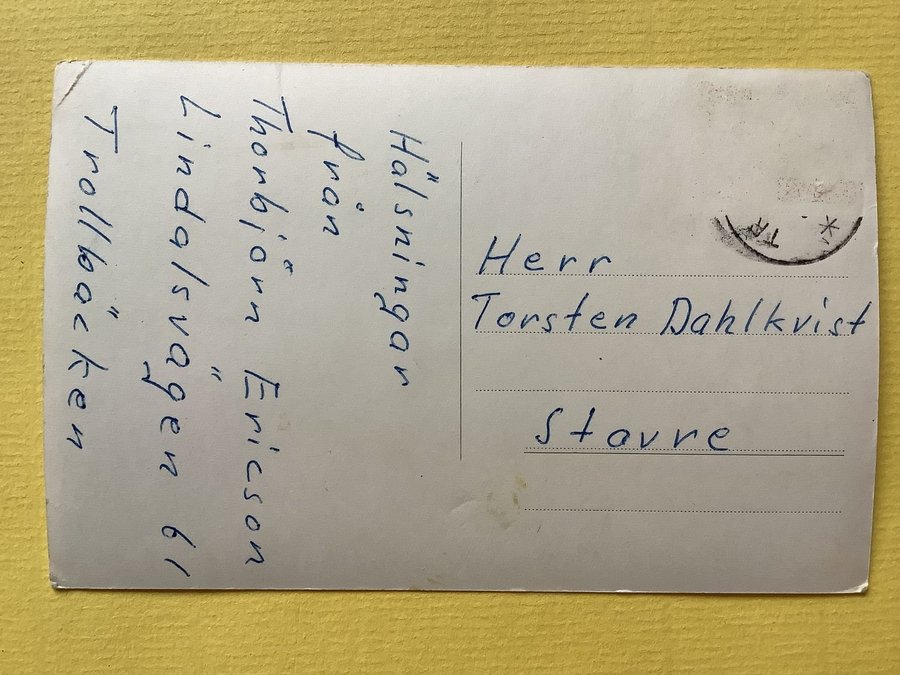 Hälsningar
från
Thorbjörn Ericson
Lindalsvägen 61
Trollbäcken
Herr
Torsten Dahlkvist
Stavre